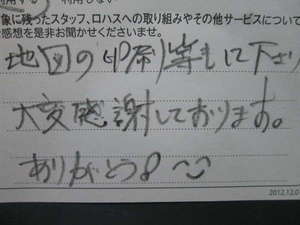 用する 利用しない
象に残ったスタッフ、ロハスへの取り組みやその他サービスについて
感想を是非お聞かせくださいませ。
地図の印刷等もして下さり
大変感謝しております。
ありがとう
2012.12.0